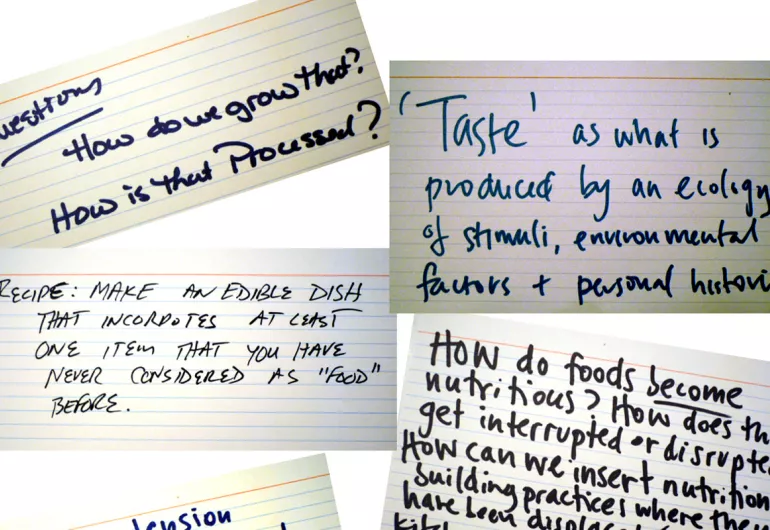 uestions
How do we grow that?
How is that Processed?
'Taste' as what is
produced by an ecology
of stimuli, environmental
factors + personal histori
RECIPE: MAKE AN EDIBLE DISH
THAT INCORPOTES AT LEAST
ONE ITEM THAT YOU HAVE
NEVER CONSIDERED AS "FOOD"
BEFORE.
How do foods become
nutritious? How does th
get interrupted or disrupte
How can we insert nutrition
building practices where the
have been displace
kit
tension